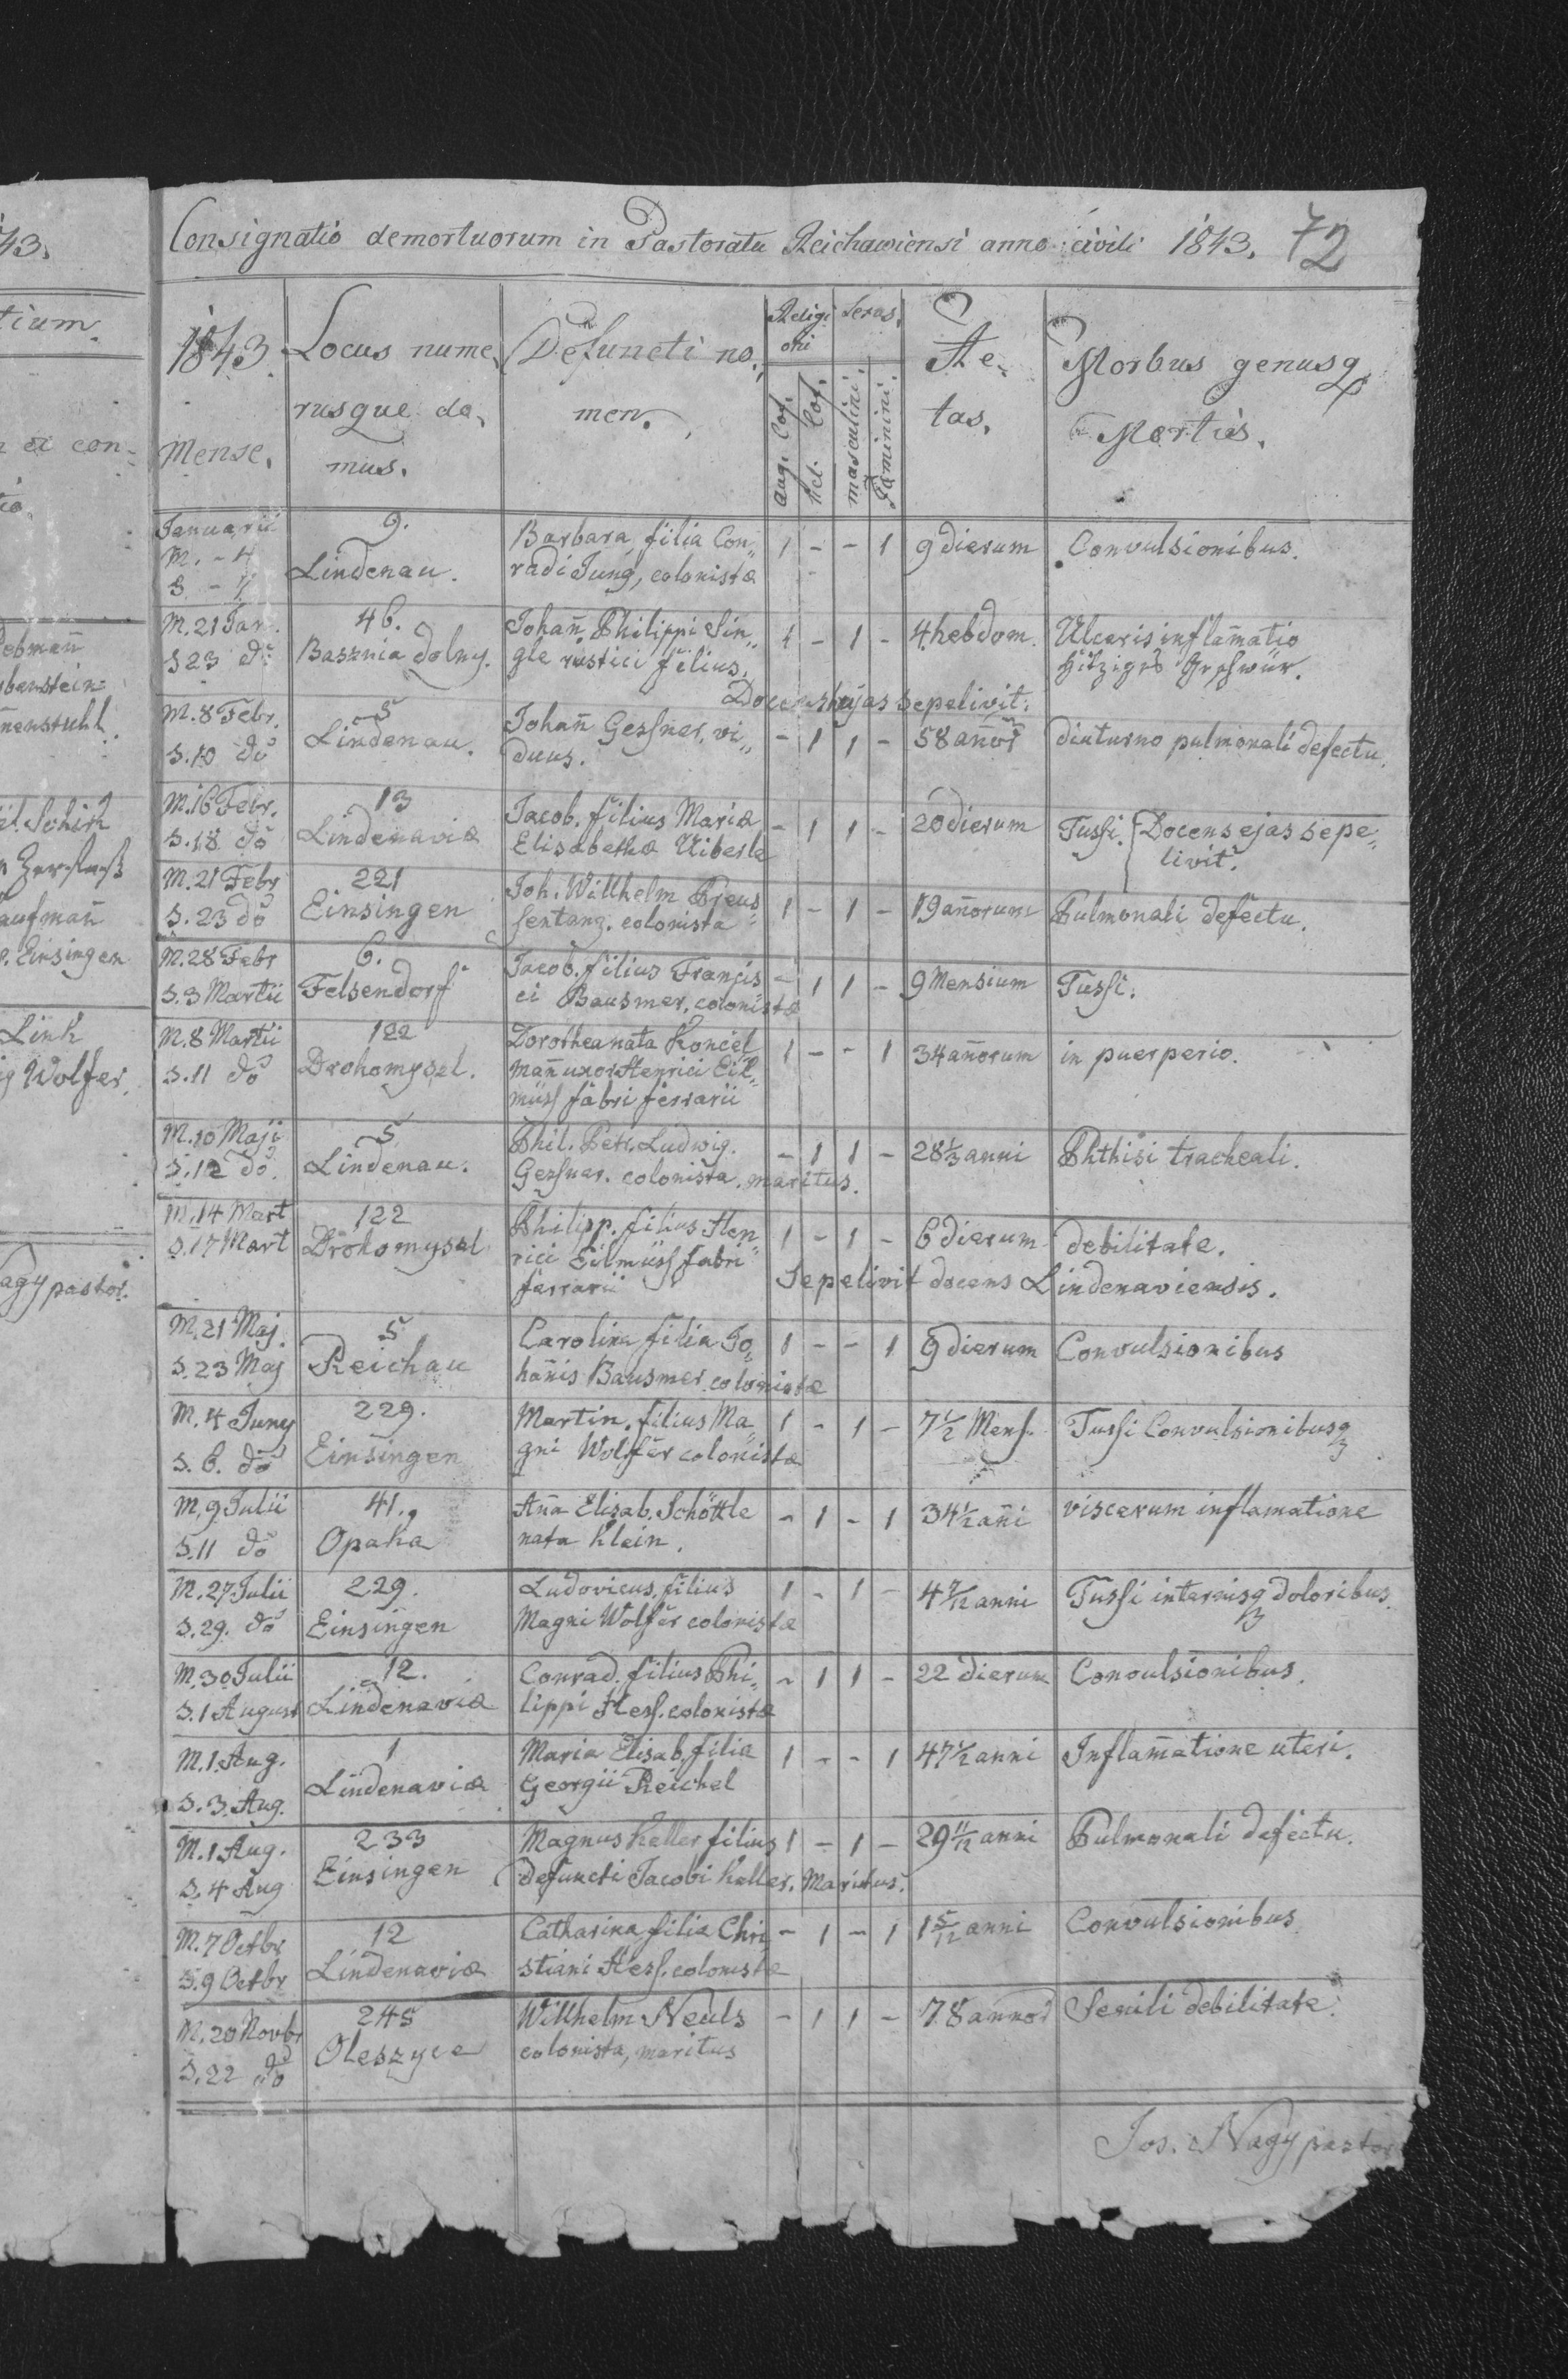 43.
tium.
et con-
ebmañ
benstein
nenstuhl.
aufmañ
Einsingen
Link
Wolfer.
agy pastor.
Consignatio demortuorum in Pastoratu Reichawiensi anno civili 1843. 72
1843 Mense. Locus nume, rusque do, mus. Defuncti no, men. Religi oni Aug. Cof. Hel. Cof. Sexus. masculini. Fæminini. Ae- tas. Morbus genusq Mortis.
Januarii 9. Barbara, filia Con,, 1 - - 1 9 dierum Convulsionibus.
M. - 4 Lindenau. radi Jung, colonistæ
S - 7
M. 21 Jan. 46. Johañ, Philippi Sin,, 1 - 1 - 4 hebdom. Ulceris inflam̃atio
S 23 do Basznia dolny. gle rustici filius. Hitziges Geschwür.
Docens hujas sepelivit.
M. 8 Febr. 5 Johañ Gessner, vi,, - 1 1 - 58 añor diuturno pulmonali defectu.
S. 10 do Lindenau. duus.
M. 16 Febr. 13 Jacob. filius Mariæ - 1 1 - 20 dierum Tussi. Docens ejas sepe,,
S. 18 do Lindenaviæ Elisabethæ Uiberle livit.
M. 21 Febr 221 Joh. Willhelm 1 - 1 - 19 añorum Pulmonali defectu.
S. 23 do Einsingen colonista
M. 28 Febr 6. Jacob. filius Francis - 1 1 - 9 Mensium Tussi.
S. 3 Martii Felsendorf ci Bausmer, colonistæ
M. 8 Martii 122 Dorothea nata Koncel 1 - - 1 34 añorum in puerperio.
S. 11 do Drohomysel. mañ uxor Henrici Eil,,
müss fabri ferrarii
M. 10 Maji 5 Phil. Pet. Ludwig. - 1 1 - 28 1/3 anni Phthisi tracheali.
S. 12 do. Lindenau. Gessner. colonista. maritus.
M. 14 Mart 122 Philipp. filius Hen 1 - 1 - 6 dierum debilitate.
S. 17 Mart Drohomysel rici Eilmüss fabri
ferrarii Sepelivit docens Lindenaviensis.
M. 21 Maj. 5 Carolina filia Jo, 1 - - 1 9 dierum Convulsionibus
S. 23 Maj Reichau hañis Bausmer colonistæ
M. 4 Juny 229. Martin. filius Ma 1 - 1 - 7 1/2 Mens. Tussi Convulsionibusq
S. 6. do Einsingen gni Wolfer colonistæ
M. 9 Julii 41. Aña Elisab. Schöttle - 1 - 1 34 1/2 añi viscerum inflamatione
S. 11 do Opaka nata Klein.
M. 27. Julii 229. Ludovicus, filius 1 - 1 - 4 7/12 anni Tussi internisq doloribus.
S. 29. do Einsingen Magni Wolfer colonistæ
M. 30 Julii 12. Conrad. filius Phi,, - 1 1 - 22 dierum Convulsionibus.
S. 1 August Lindenaviæ lippi Hess. colonistæ
M. 1. Aug. 1 Maria Elisab. filia 1 - - 1 47 1/2 anni Inflam̃atione uteri.
S. 3. Aug. Lindenaviæ Georgii Reichel
M. 1 Aug. 233 Magnus Keller filius 1 - 1 - 29 11/12 anni Pulmonali defectu.
S. 4 Aug Einsingen defuncti Jacobi Keller. Maritus.
M. 7 Octbr 12 Catharina filia Chri - 1 - 1 1 5/12 anni Convulsionibus
S. 9 Octbr Lindenaviæ stiani Hess. colonistæ
M. 20 Novbr 245 Willhelm Neuls - 1 1 - 78 annor Senili debilitate.
S. 22 do Oleszyce colonista, maritus
Jos. Nagy pastor